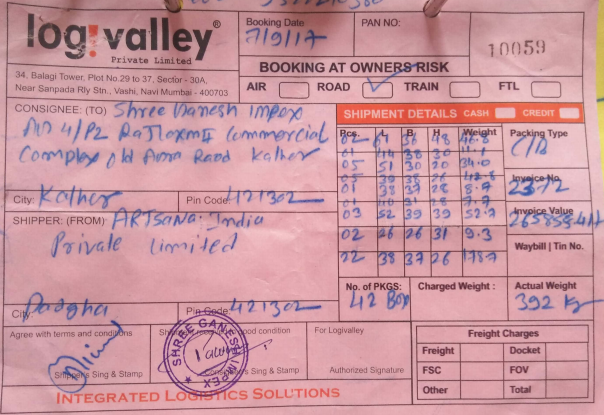 logivalley®
Private Limited
34. Balagi Tower, Plot No.29 to 37, Sector - 30A,
Near Sanpada Rly Stn., Vashi, Navi Mumbai - 400703
Booking Date
7/9/17
PAN NO:
10059
BOOKING AT OWNERS RISK
AIR ROAD ✓ TRAIN FTL
CONSIGNEE: (TO) Shree Ganesh Impex
Commercial
Complex Old Road Kalher
City Kalher Pin Code 421302
SHIPPER: (FROM) ARTSANA India
Private Limited
City Padgha Pin Code 421302
SHIPMENT DETAILS CASH CREDIT
Pcs. L B H Weight
05 51 30 20 34.0
03 52 39 39 52.7
02 26 26 31 9.3
22 38 37 26 178.7
Packing Type
C/B
Invoice No.
2372
Invoice Value
Waybill | Tin No.
No. of PKGS:
42 Box
Charged Weight :
Actual Weight
392 kg
Agree with terms and conditions
Shipper's Sing & Stamp
good condition
SHREE GANESH IMPEX
Consignee's Sing & Stamp
For Logivalley
Authorized Signature
Freight Charges
Freight Docket
FSC FOV
Other Total
INTEGRATED LOGISTICS SOLUTIONS